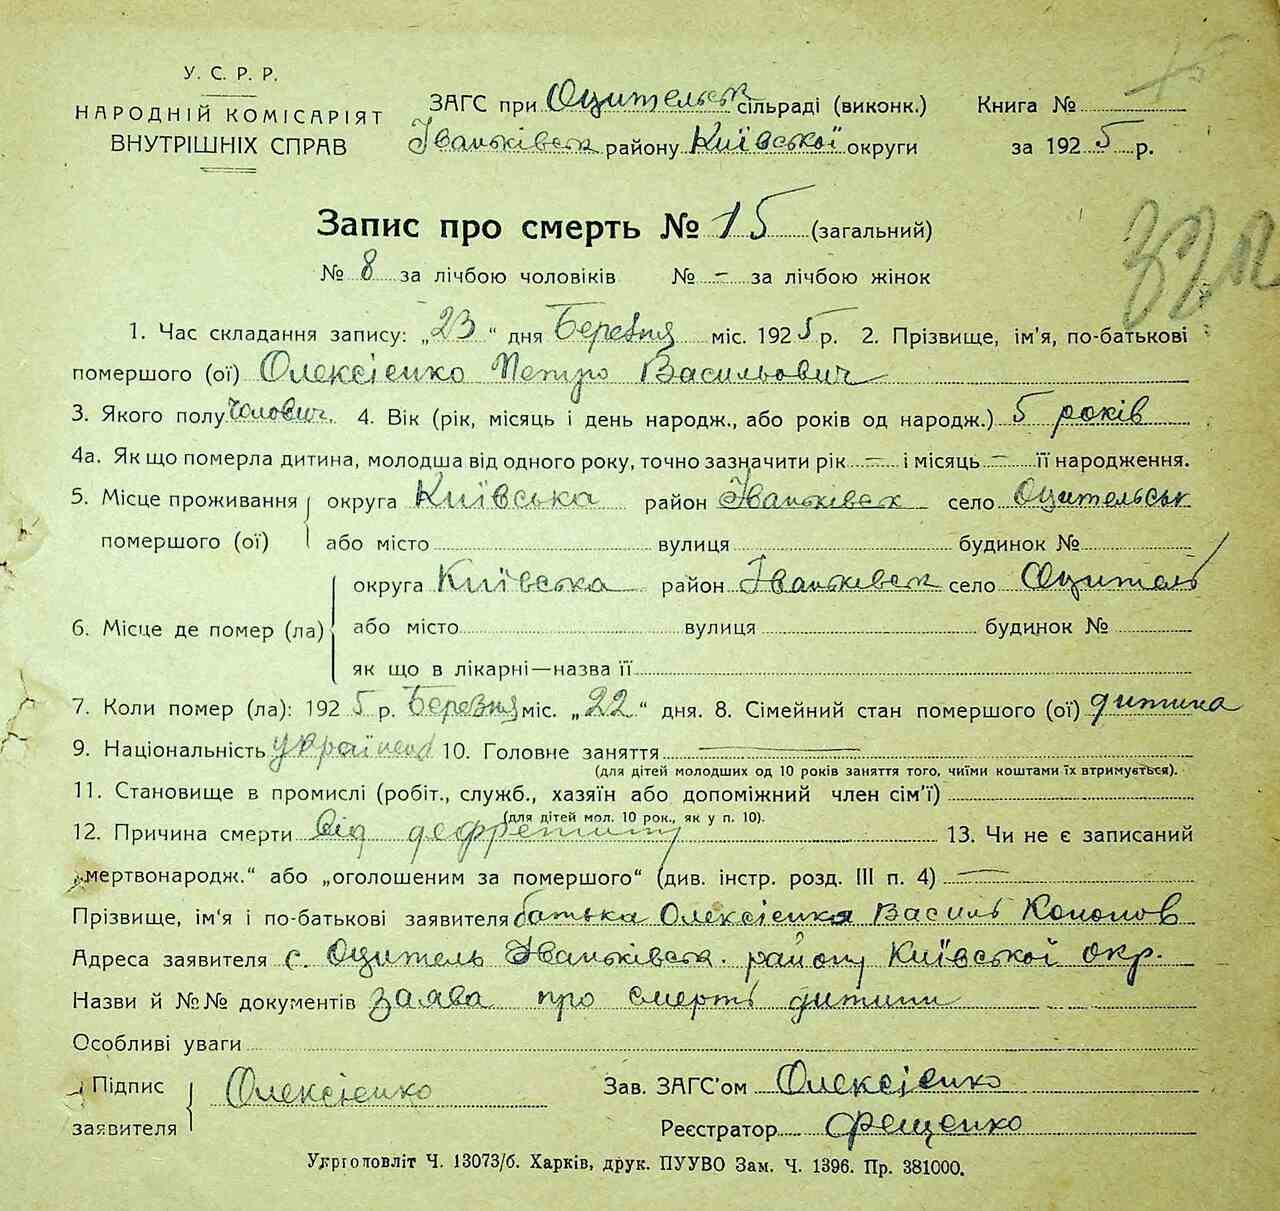 У. С. Р. Р.
НАРОДНІЙ КОМІСАРІЯТ
ВНУТРІШНІХ СПРАВ
ЗАГС при Оцительськ сільраді (виконк.)
Іваньківськ району Київської округи
Книга №
за 1925 р.
Запис про смерть № 15 (загальний)
№ 8 за лічбою чоловіків № - за лічбою жінок
1. Час складання запису: „23“ дня Березня міс. 1925 р. 2. Прізвище, ім'я, по-батькові
помершого (ої) Олексієнко Петро Васильович
3. Якого полу Чоловіч. 4. Вік (рік, місяць і день народж., або років од народж.) 5 років
4а. Як що померла дитина, молодша від одного року, точно зазначити рік — і місяць — її народження.
5. Місце проживання округа Київська район Іваньківськ село Оцительськ
помершого (ої) або місто вулиця будинок №
округа Київська район Іваньківськ село Оцитель
6. Місце де помер (ла) або місто вулиця будинок №
як що в лікарні—назва її
7. Коли помер (ла): 1925 р. Березня міс. „22“ дня. 8. Сімейний стан помершого (ої) дитина
9. Національність 10. Головне заняття —
(для дітей молодших од 10 років заняття того, чиїми коштами їх втримується).
11. Становище в промислі (робіт., служб., хазяїн або допоміжний член сім'ї)
(для дітей мол. 10 рок., як у п. 10).
12. Причина смерти від 13. Чи не є записаний
„мертвонародж.“ або „оголошеним за помершого“ (див. інстр. розд. III п. 4) —
Прізвище, ім'я і по-батькові заявителя батька Олексієнка Василь Кононов
Адреса заявителя с. Оцитель Іваньківськ. району Київської окр.
Назви й №№ документів заява про смерть дитини
Особливі уваги
Підпис заявителя Олексієнко
Зав. ЗАГС'ом Олексієнко
Реєстратор Фещенко
Укрголовліт Ч. 13073/б. Харків, друк. ПУУВО Зам. Ч. 1396. Пр. 381000.